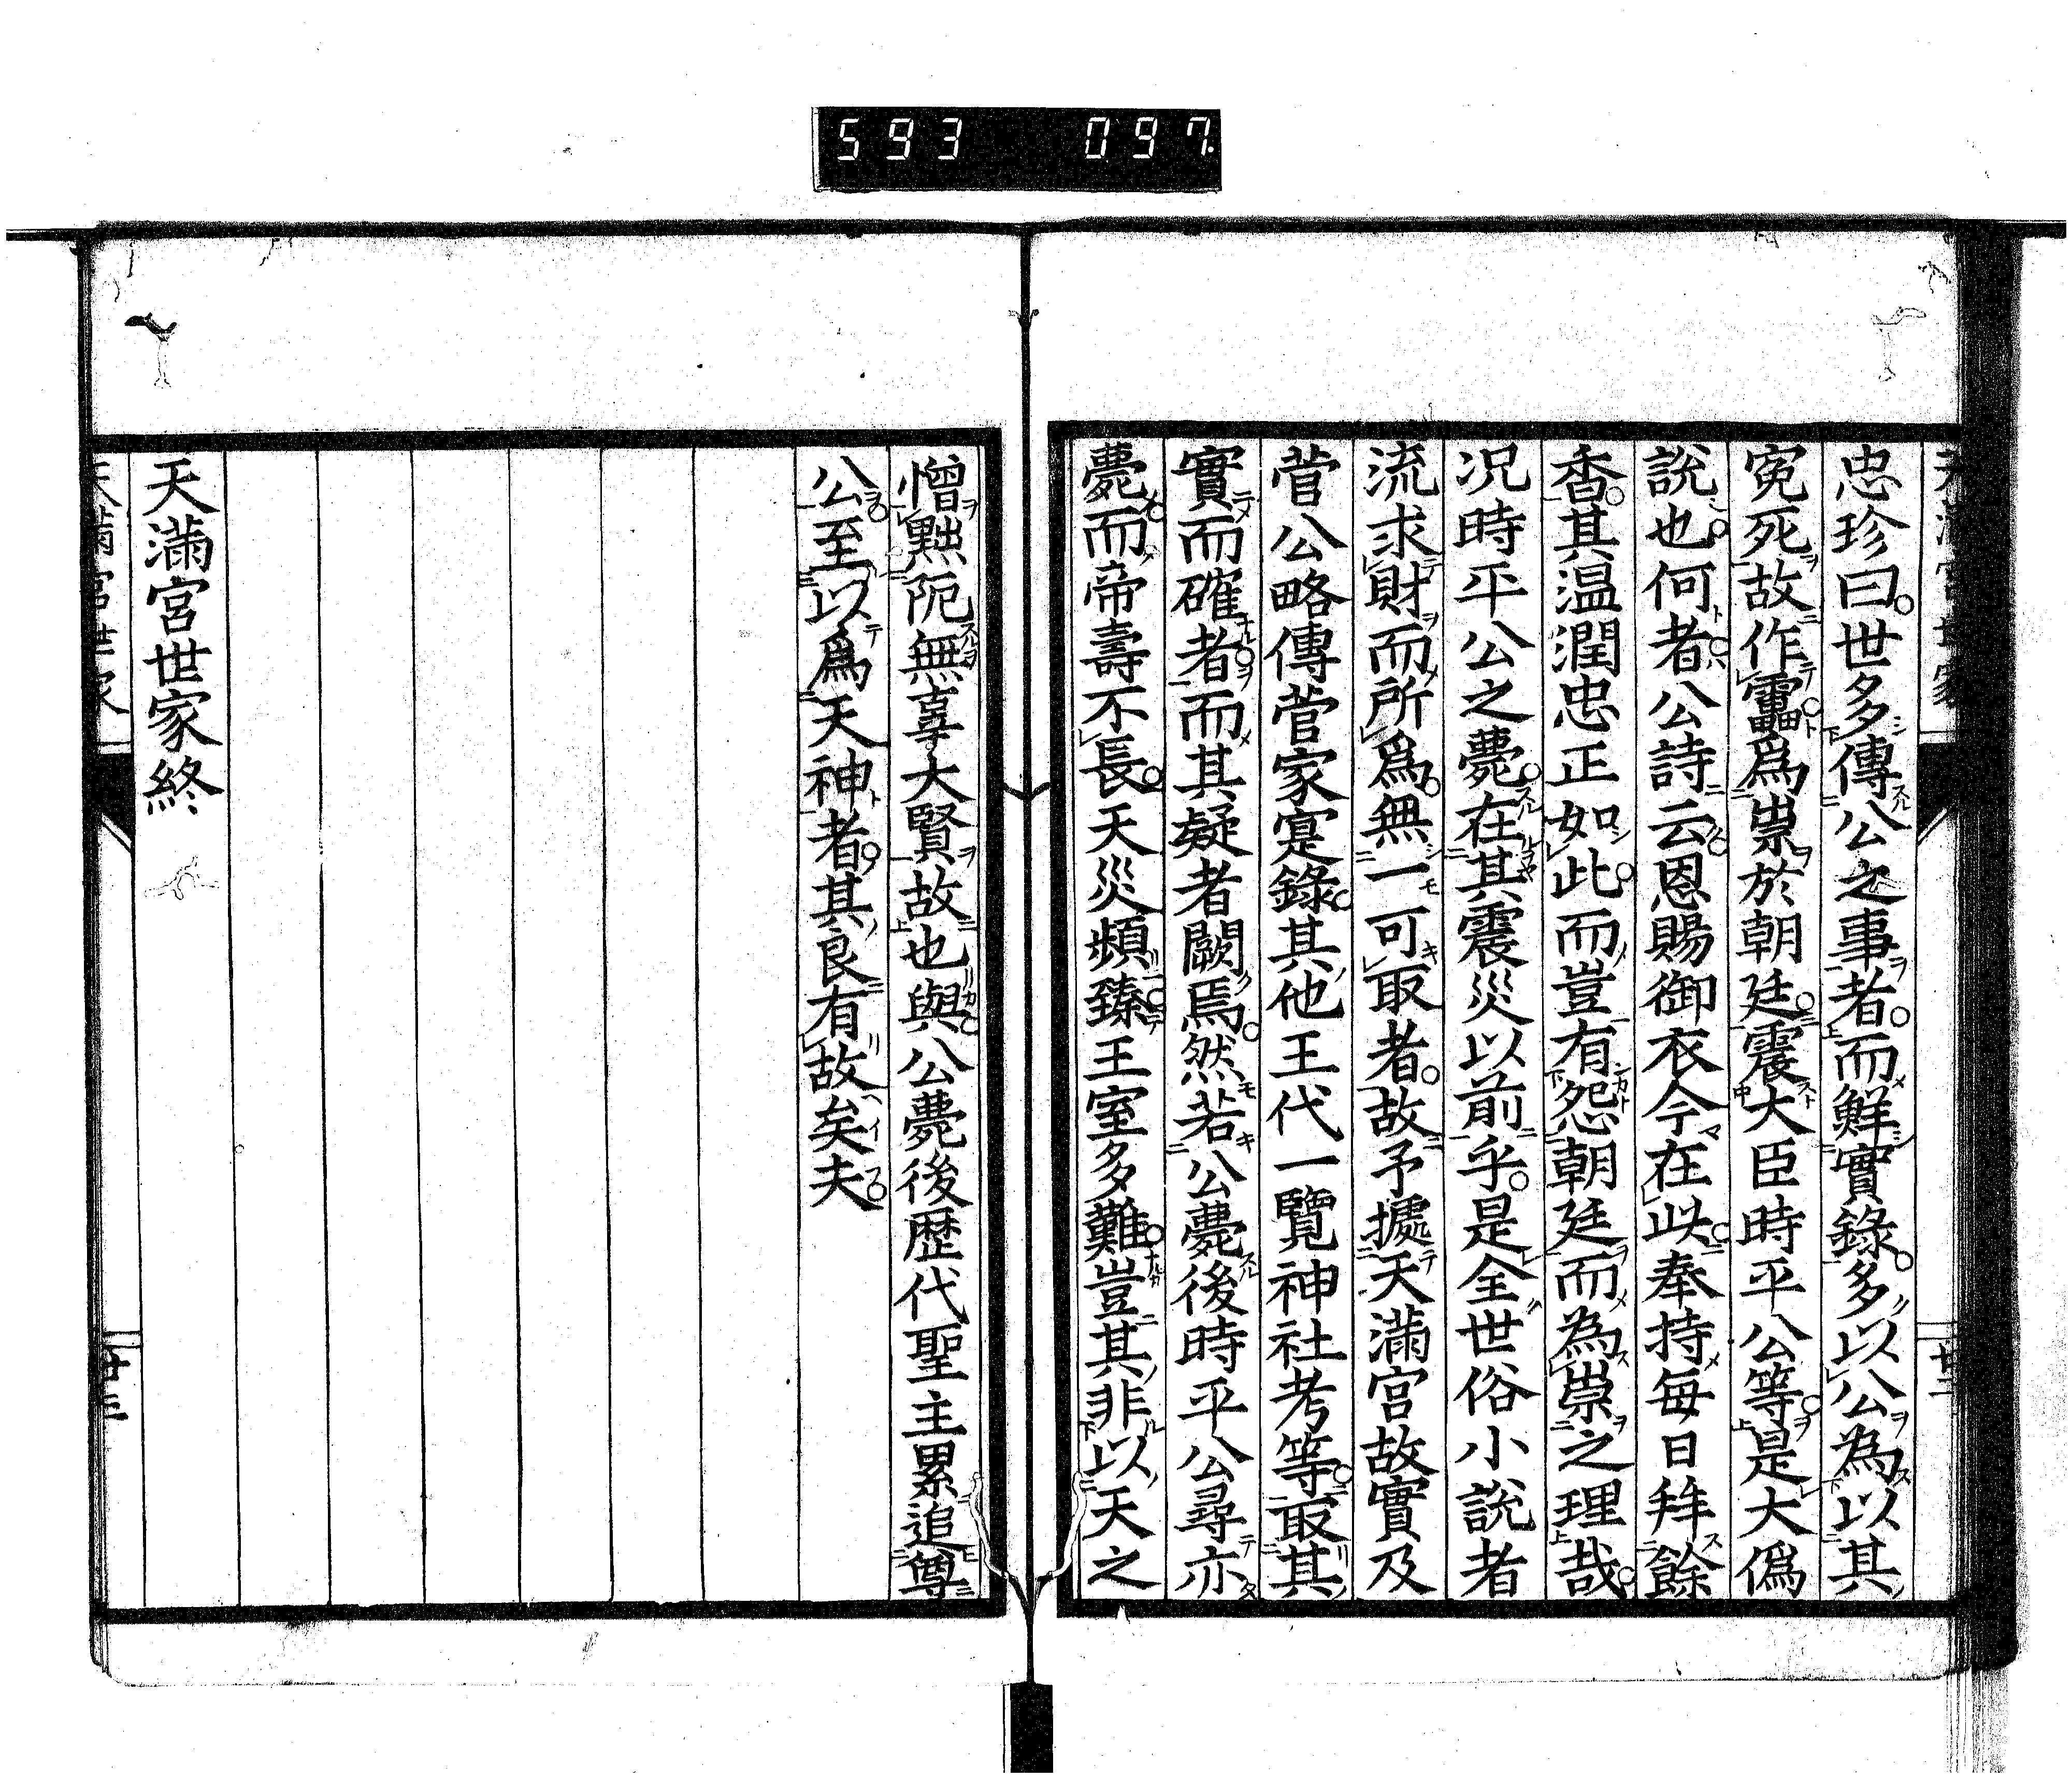 593 097
天満宮世家
廿二
忠珍曰世多傳公之事者而鮮實錄多以公為以其
寃死故作靁爲祟於朝廷震大臣時平公等是大僞
說也何者公詩云恩賜御衣今在此奉持每日拜餘
香其温潤忠正如此而豈有怨朝廷而為祟之理哉
况時平公之薨在其震災以前乎是全世俗小說者
流求財而所爲無一可取者故予據天滿宮故實及
菅公略傳菅家寔錄其他王代一覽神社考等取其
實而確者而其疑者闕焉然若公薨後時平公尋亦
薨而帝壽不長天災頻臻王室多難豈其非以天之
憎黜阨無辜大賢故也與公薨後歷代聖主累追尊
公至以爲天神者其良有故矣夫
天滿宮世家終
天滿宮世家
廿三